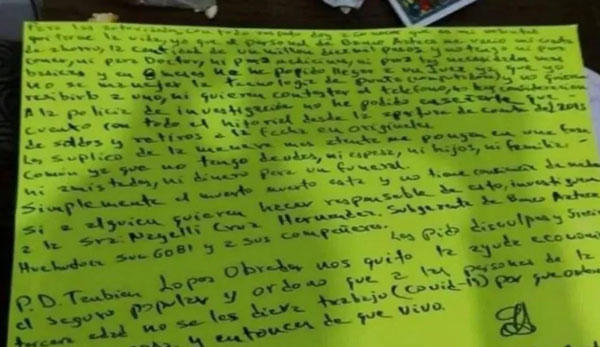 Para las autoridades, con todo respeto doy a conocer es mi voluntad
la vida, ya que el personal de Banco Azteca me vacio mi cuenta
de ahorro, la cantidad de un millon pesos y no tengo ni para
comer, ni para Doctor, ni para medicina, ni para las necesidades mas
basicas y en 8 meses no he podido llegar
no se manejar la tecnologia de punta y no quieren
recibirlo a uno, ni quieren contestar el telefono, no hay consideracion
A la policia de investigación no he podido
cuento con todo el historial desde la apertura de cuenta del 2015
de saldos y retiros a la fecha en originales
Les suplico de la manera mas atenta me pongan en una fosa
Comun ya que no tengo deudos, ni esposa, ni hijos, ni familia
ni amistades, ni dinero para un funeral.
Simplemente el muerto muerto esta y no tiene
Si a alguien quieren hacer responsable de esto, investiguen
a la Sra: Nayelli Cruz Hernandez. Subgerente de Banco Azteca
Huehuetoca Suc 6081 y a sus compañeros.
Les pido disculpas y
P.D. Tambien Lopez Obrador nos quito la ayuda economica
el seguro popular y ordeno que a las personas de la
tercera edad no se les diera trabajo (covid-19) por que
y entonces de que vivo.